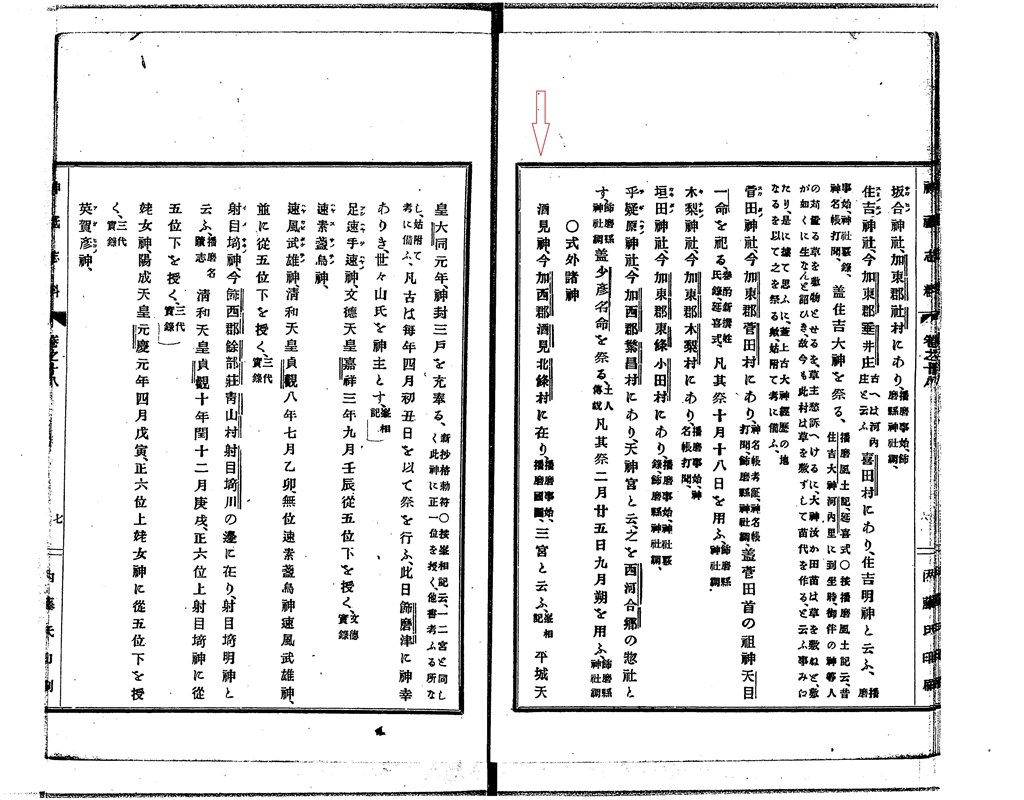 神祇志料
坂合神社、今加東郡社村にあり、播磨事始、飾磨縣神社調、
住吉神社、今加東郡垂井庄古へは河內庄と云ふ喜田村にあり、住吉明神と云ふ、播磨
事始、神社覈錄、神名帳打聞、蓋住吉大神を祭る、播磨風土記、延喜式〇按播磨風土記云、昔住吉大神河內里に到坐時、御伴の神等人
の苅置る草を敷物とせるを、草主愁訴へけるに、大神汝か田苗は草を敷ぬと、敷
が如くに生なんと詔ひき、故今も此村は草を敷ずして苗代を作る、と云ふ事みに
たり、是に據て思ふに、蓋上古大神經歷の地
なるを以て之を祭る歟、姑附て考に備ふ、
菅田神社、今加東郡菅田村にあり、神名帳考証、神名帳打聞、飾磨縣神社調、蓋菅田首の祖神天目
一命を祀る、參酌新撰姓氏錄、延喜式、凡其祭十月十八日を用ふ、飾磨縣神社調、
木梨神社、今加東郡木梨村にあり、播磨事始、神名帳打聞、
垣田神社、今加東郡東條小田村にあり、播磨事始、神社覈錄、飾磨縣神社調、
乎疑原神社、今加西郡繁昌村にあり、天神宮と云、之を西河合郷の惣社と
す、飾磨縣神社調蓋少彥名命を祭る、土人傳說凡其祭二月廿五日九月朔を用ふ、飾磨縣神社調
〇式外諸神
酒見神、今加西郡酒見北條村に在り、播磨事始、播磨國圖、三宮と云ふ、峯相記平城天
皇大同元年神封三戶を充奉る、新抄格勅符〇按峯相記云、一二宮と同しく此神に正一位を授く、他書考ふる所な
し、姑附て考に備ふ、凡古は每年四月初丑日を以て祭を行ふ、此日飾磨津に神幸
ありき世々山氏を神主とす、峯相記
足速手速神、文德天皇嘉祥三年九月壬辰、從五位下を授く、文德實錄
速素盞烏神、
速風武雄神、淸和天皇貞觀八年七月乙卯、無位速素盞烏神速風武雄神、
並に從五位下を授く、三代實錄
射目埼神、今飾西郡餘部莊靑山村射目埼川の邊に在り、射目埼明神と
云ふ、播磨名蹟志淸和天皇貞觀十年閏十二月庚戌、正六位上射目埼神に從
五位下を授く、三代實錄
姥女神陽成天皇元慶元年四月戊寅、正六位上姥女神に從五位下を授
く、三代實錄
英賀彥神、
七